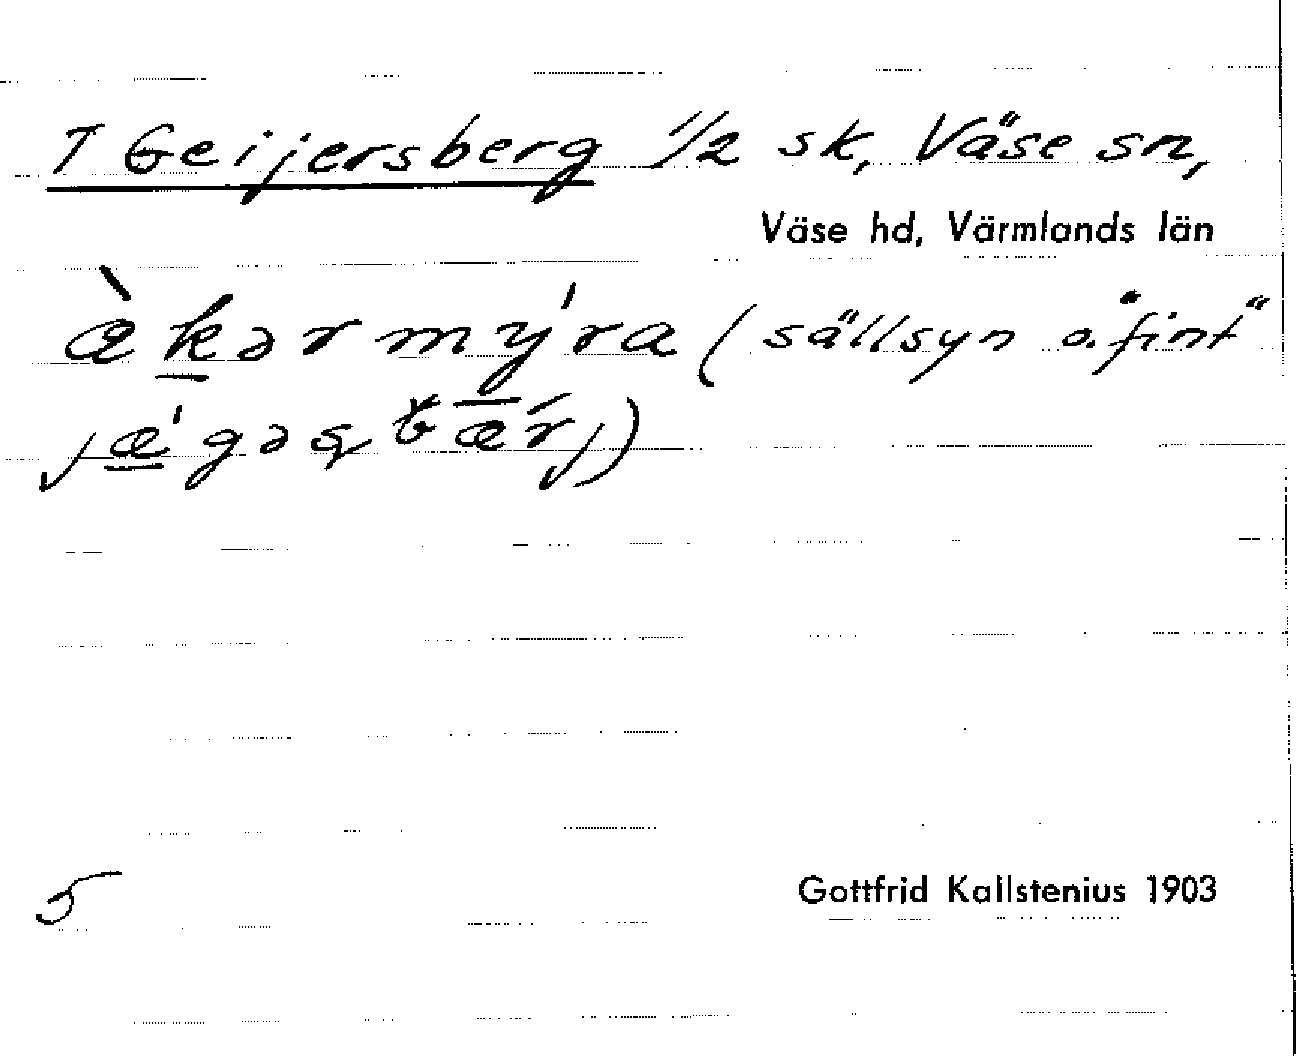 T Geijersberg 1/2 sk, Väse sn,
Väse hd, Värmlands län
æ̀kərmý̱ra (sällsyn o. "fint"
Gottfrid Kallstenius 1903
5